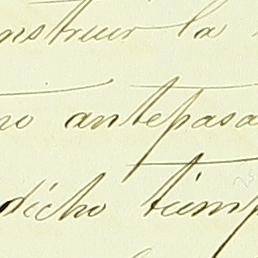 nstruir la
no antepasa
dicho tiemp